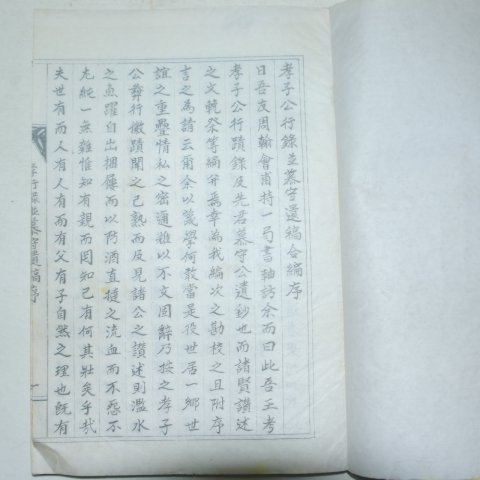 孝子公行錄並慕守遺稿合編序
日吾友周翰會甫持一弓書軸訪余而曰此吾王考
孝子公行蹟錄及先君慕守公遺鈔也而諸賢讚述
之文輓祭等編弁焉幸為我編次之勘校之且附序
言之為請云爾余以蔑學何敢當是役世居一鄉世
誼之重疊情私之密邇難以不文固辭乃按之孝子
公葬行徽蹟聞之已熟而及見諸公之讚述則濫水
之魚躍自出捆屨而以防酒直提之流血而不惡不
先純一無雜惟知有親而罔知己有何其壯矣乎哉
夫世有而人有人有而有父有子自然之理也旣有
孝行錄並慕守遺稿序
一